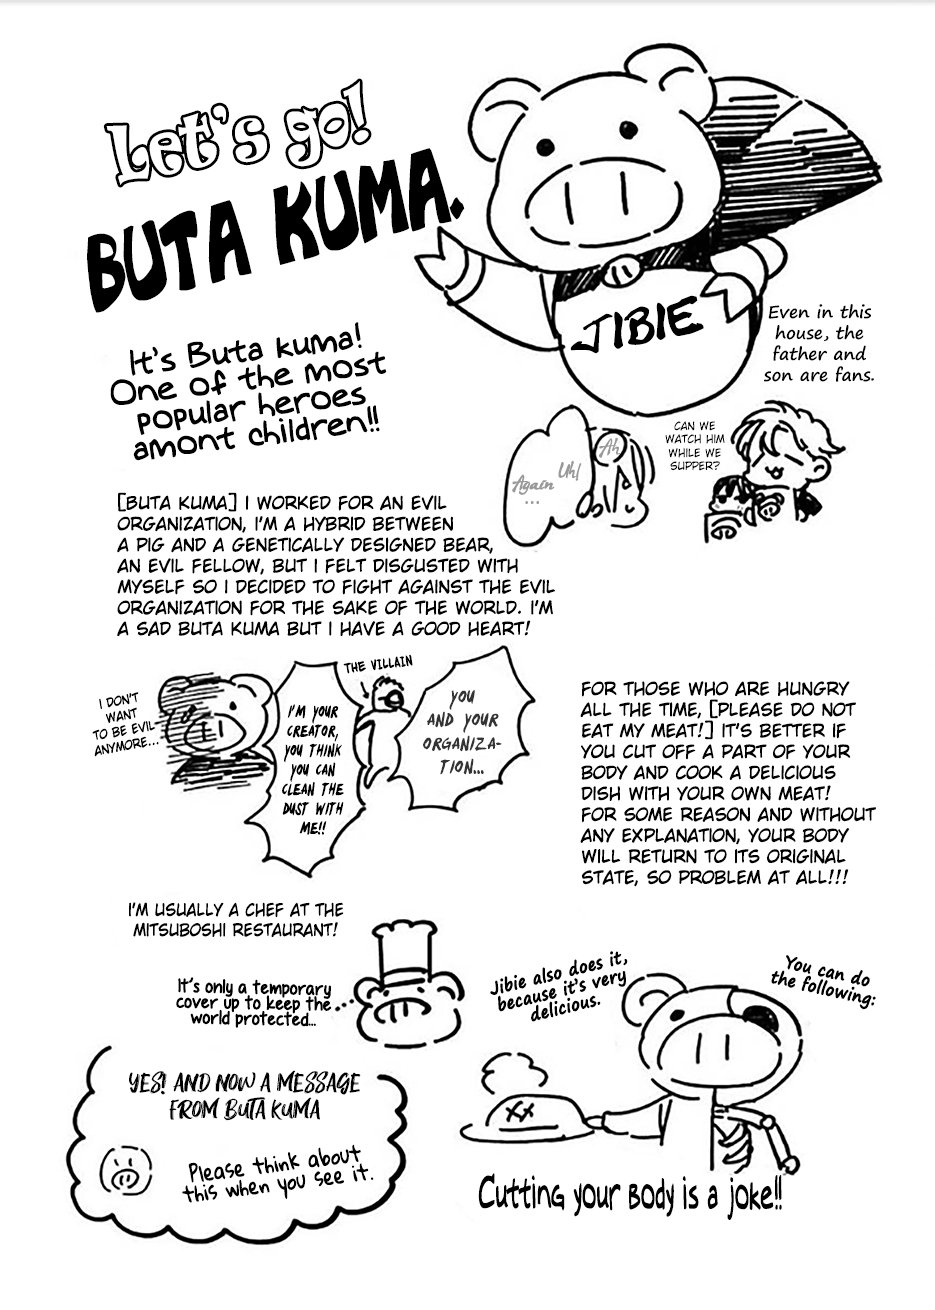 Let's go!
BUTA KUMA.
JIBIE
It's Buta kuma!
One of the most
popular heroes
amont children!!
Even in this
house, the
father and
son are fans.
CAN WE
WATCH HIM
WHILE WE
SUPPER?
Ah
Uh!
Again
...
[BUTA KUMA] I WORKED FOR AN EVIL
ORGANIZATION, I'M A HYBRID BETWEEN
A PIG AND A GENETICALLY DESIGNED BEAR,
AN EVIL FELLOW, BUT I FELT DISGUSTED WITH
MYSELF SO I DECIDED TO FIGHT AGAINST THE EVIL
ORGANIZATION FOR THE SAKE OF THE WORLD. I'M
A SAD BUTA KUMA BUT I HAVE A GOOD HEART!
I DON'T
WANT
TO BE EVIL
ANYMORE...
I'M YOUR
CREATOR,
YOU THINK
YOU CAN
CLEAN THE
DUST WITH
ME!!
THE VILLAIN
YOU
AND YOUR
ORGANIZA-
TION...
FOR THOSE WHO ARE HUNGRY
ALL THE TIME, [PLEASE DO NOT
EAT MY MEAT!] IT'S BETTER IF
YOU CUT OFF A PART OF YOUR
BODY AND COOK A DELICIOUS
DISH WITH YOUR OWN MEAT!
FOR SOME REASON AND WITHOUT
ANY EXPLANATION, YOUR BODY
WILL RETURN TO ITS ORIGINAL
STATE, SO PROBLEM AT ALL!!!
I'M USUALLY A CHEF AT THE
MITSUBOSHI RESTAURANT!
It's only a temporary
cover up to keep the
world protected...
Jibie also does it,
because it's very
delicious.
You can do
the following:
YES! AND NOW A MESSAGE
FROM BUTA KUMA
Please think about
this when you see it.
Cutting your body is a joke!!